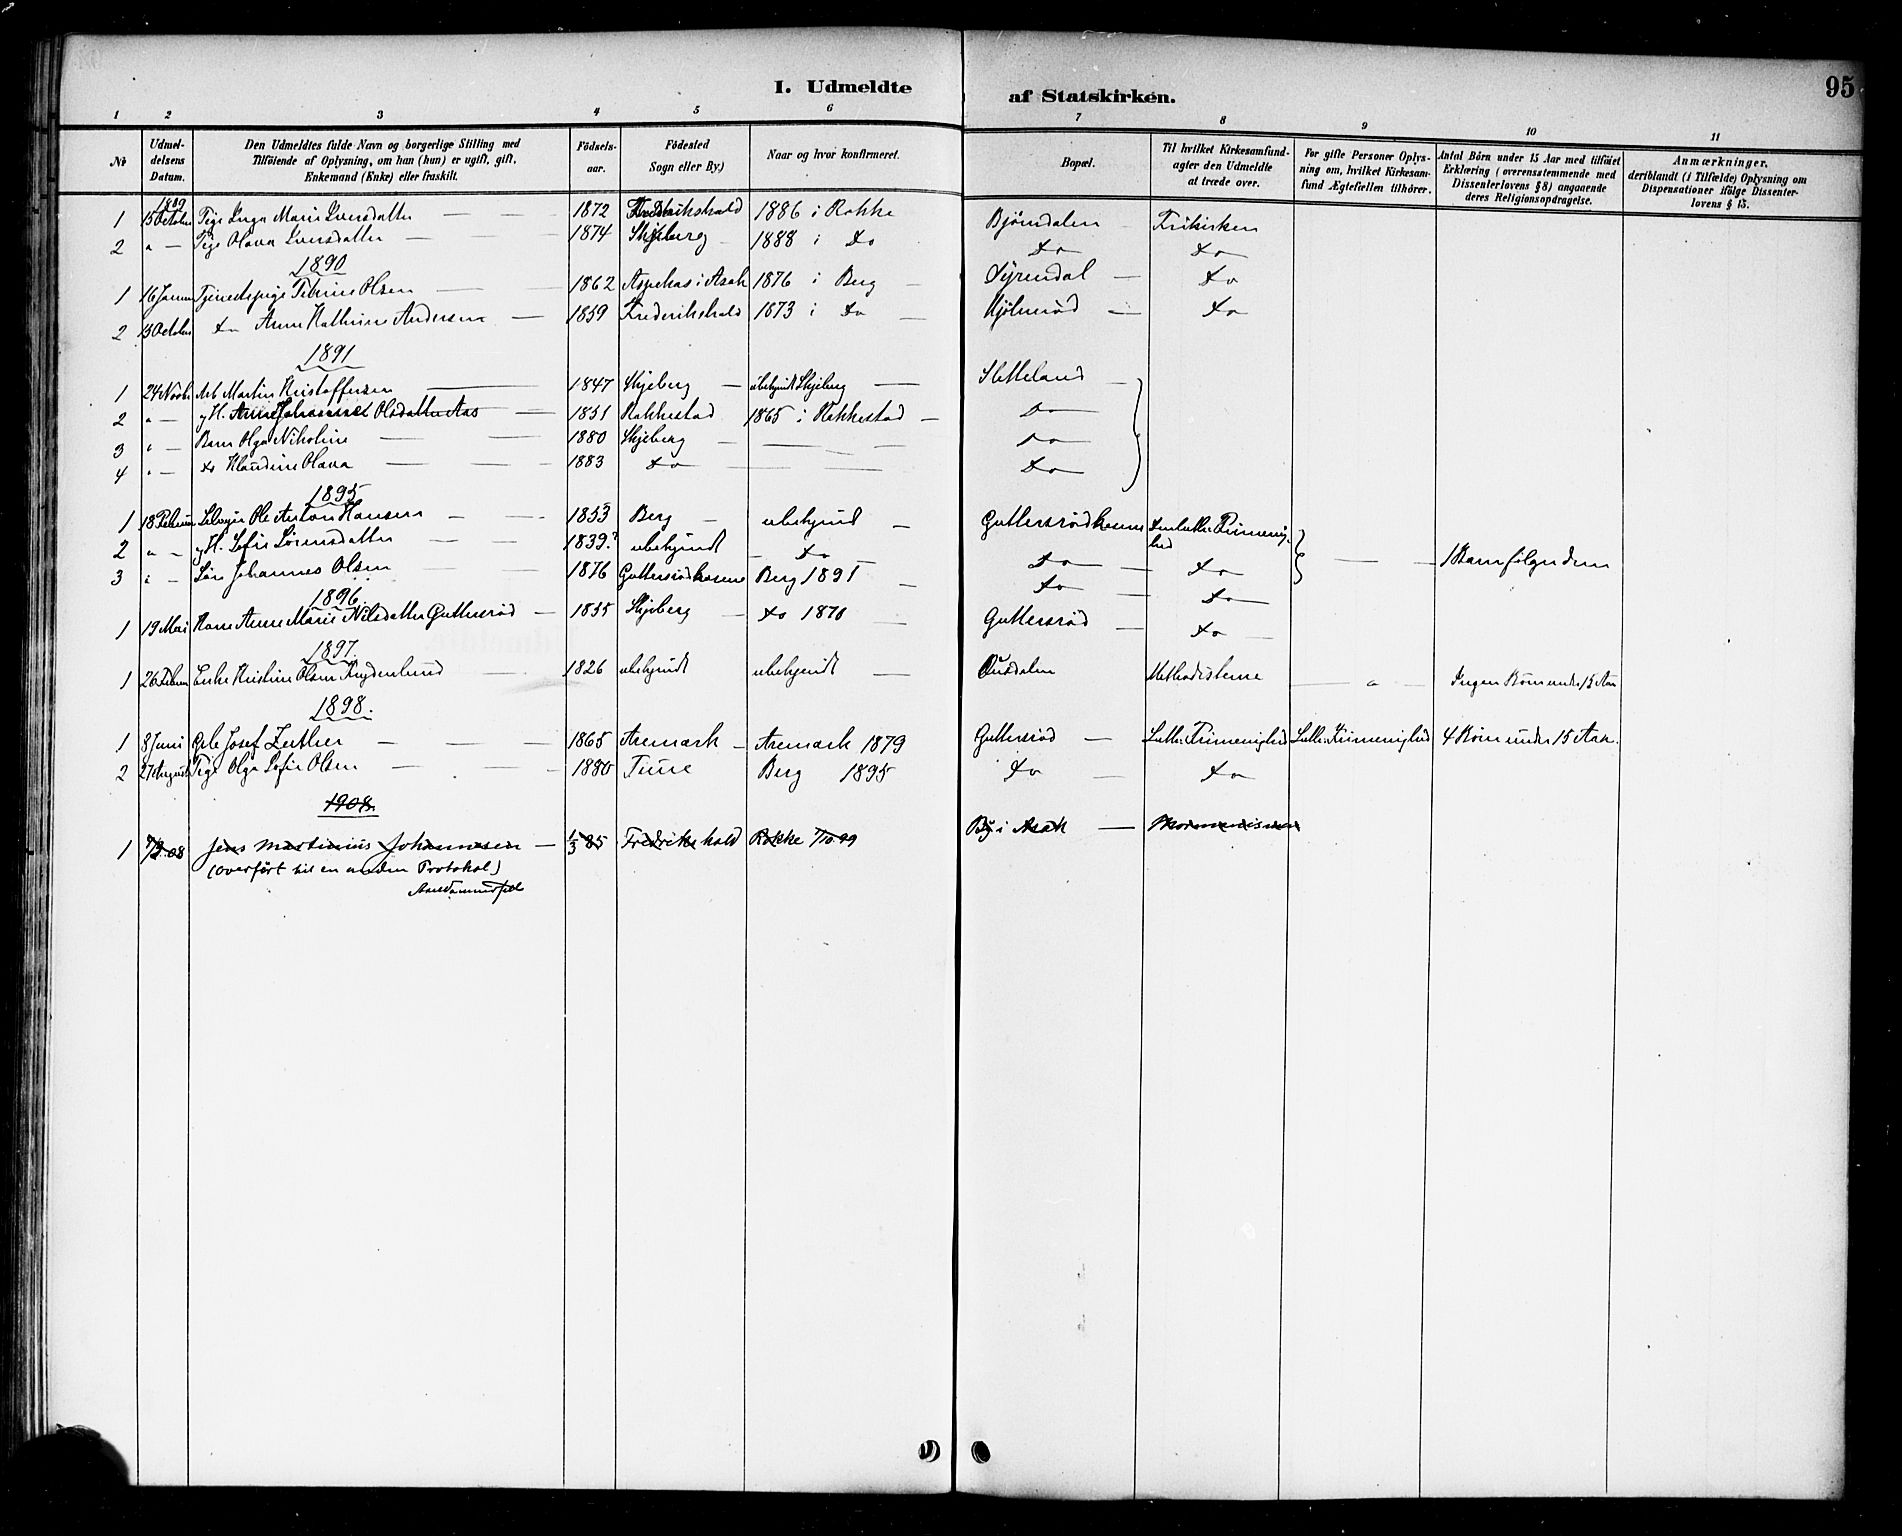 I. Udmeldte af Statskirken. 95
1 2 3 4 5 6 7 8 9 10 11
No
Udmeldelsens Datum.
Den Udmeldtes fulde Navn og borgerlige Stilling med
Tilföiende af Oplysning, om han (hun) er ugift, gift,
Enkemand (Enke) eller fraskilt.
Födselsaar.
Födested
Sogn eller By.)
Naar og hvor konfirmeret.
Bopæl.
Til hvilket Kirkesamfund-
agter den Udmeldte
at træde over.
For gifte Personer Oplys-
ning om, hvilket Kirkesam-
fund Ægtefællen tilhörer.
Antal Börn under 15 Aar med tilföiet
Erklæring (overensstemmende med
Dissenterlovens § 8) angaaende
deres Religionsopdragelse.
Anmærkninger,
deriblandt (i Tilfælde) Oplysning om
Dispensationer ifölge Dissenter-
lovens § 15.
1889
1 15 October Pige Inga Marie Iversdatter 1872 Fredrikshald 1886 i Rokke Bjørndalen Frikirken
2 " — Pige Olava Iversdatter 1874 Skjeberg 1888 i do do do
1890
1 16 Januar Tjenestepige Olsen 1862 Aspehas i Asak 1876 i Berg do
2 15 October do Anne Kathrine Andersen 1859 Frederikshald 1873 i do Kjølnerød do
1891
1 24 Novbr. Arb Martin Kristoffersen 1847 Skjeberg ubekjendt Skjeberg Sletteland
2 " — g. H. Anne Johannes Olsdatter Aas 1851 Rakkestad 1865 i Rakkestad do
3 " — Barn Olga Nikoline 1880 Skjeberg do
4 " — do Klaudine Olava 1883 do do
1895
1 18 Februar Ole Anton Hansen 1853 Berg ubekjend Guttersrødkasene Den luth. Frimenighed
2 " — g. H. Sofie Sørensdatter 1839? ubekjendt do do do 1 Barn følger dem
3 " — Søn Johannes Olsen 1876 Guttersrødkasene Berg 1891 do do
1896.
1 19 Mai Kone Anne Marie Nilsdatter Guttersrød 1855 Skjeberg do 1870 Guttersrød do
1897.
1 26 Februar Enke Kristine Olsen 1826 ubekjendt ubekjendt Busdalen Methodisterne " Ingen Børn under 15 Aar
1898.
1 8 Juni Josef Zeither 1865 Aremark Aremark 1879 Guttersrød Luth. Frimenighed Luth. Frimenighed 4 Børn under 15 Aar.
2 27 August Pige Olga Sofie Olsen 1880 Tune Berg 1895 do do
1908.
1 08 Jens Martinius Johannesen 1/3 85 Fredrikshald Rokke 1/10 99 By i Asak Mormonismen
(overført til en anden Protokol)